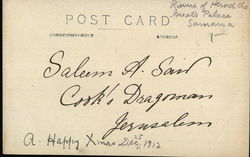 Ruins of Herod the
Greats Palace
Samaria
POST CARD
CORRESPONDENCE ADDRESS
Saleem A. Said
Cook's Dragoman
Jerusalem
A. Happy Xmas Dec 25 1912